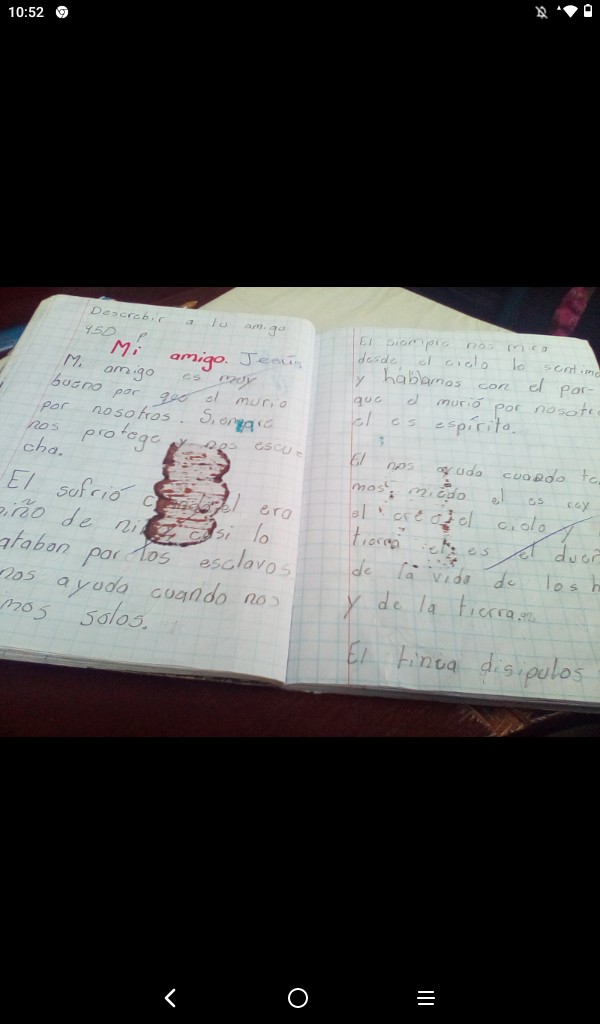 10:52
Descrebir a tu amigo
450 P
Mi amigo. Jesús
Mi amigo es muy
bueno por que el murio
por nosotros. Siempre
nos protege y nos escu-
cha.
El sofrió cuando el era
niño de niño casi lo
ataban por los esclavos
nos ayuda cuando nos
mos solos.
El siempre nos mira
desde el cielo lo sentimo
y hablamos con el por-
que el murió por nosotro
el es espírito.
El nos ayuda cuando te
mos miedo el es rey
el creo el cielo y
tierra el es el dueñ
de la vida de los h
y de la tierra.
El tinia disipulos